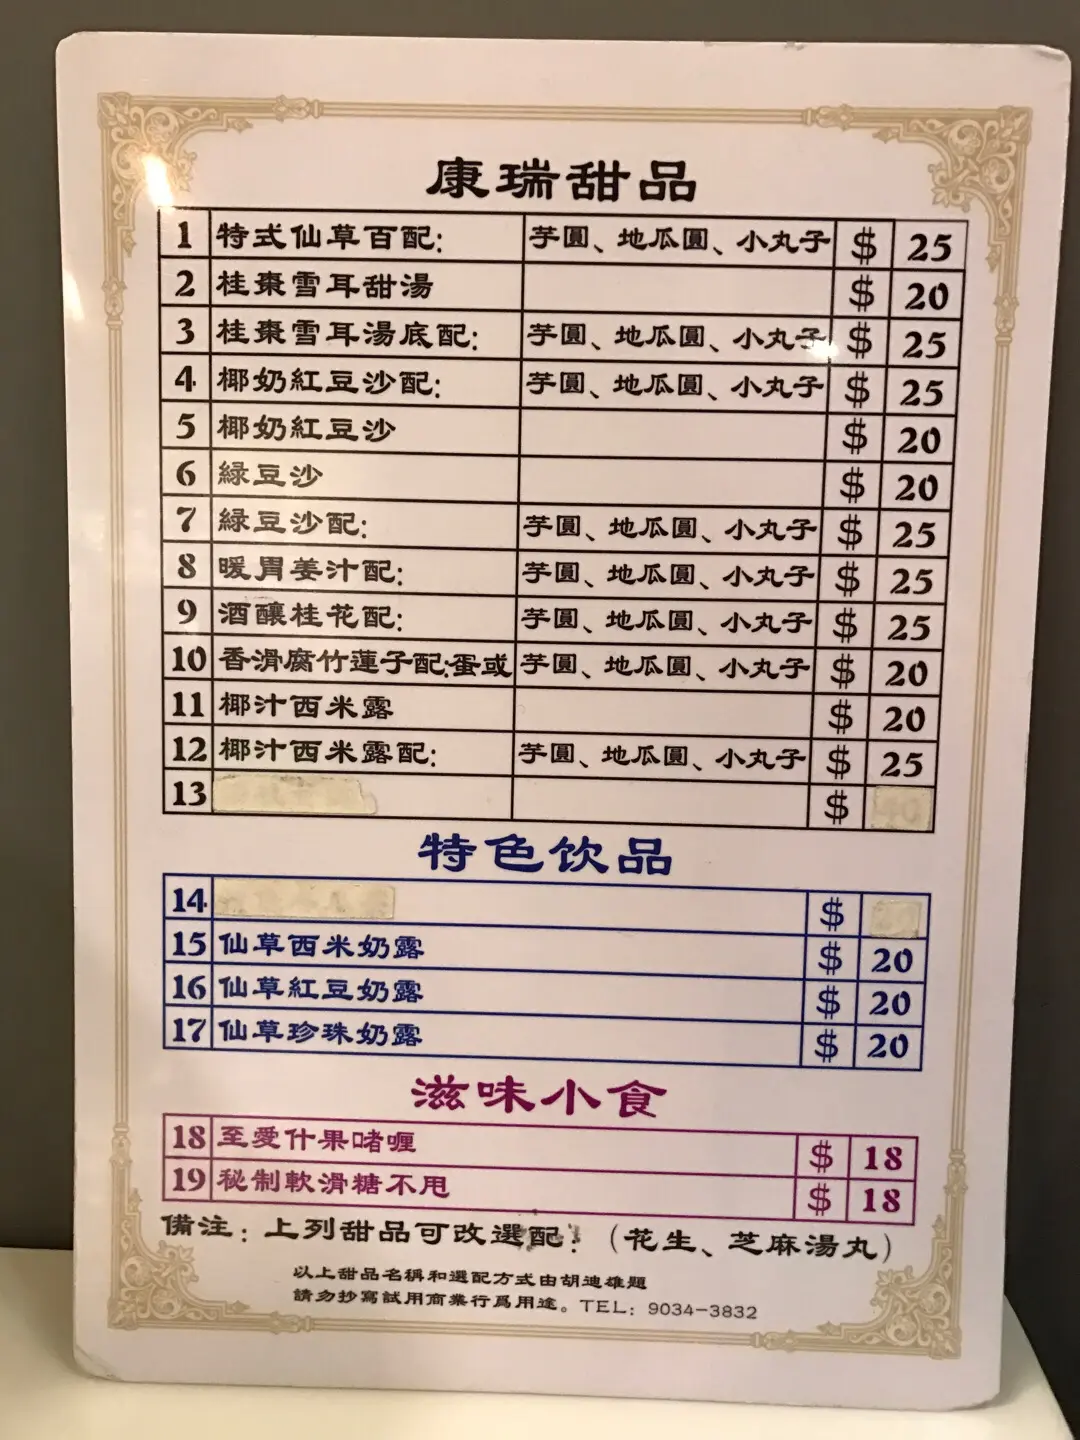 康瑞甜品
1 特式仙草百配: 芋圓、地瓜圓、小丸子 $ 25
2 桂棗雪耳甜湯 $ 20
3 桂棗雪耳湯底配: 芋圓、地瓜圓、小丸子 $ 25
4 椰奶紅豆沙配: 芋圓、地瓜圓、小丸子 $ 25
5 椰奶紅豆沙 $ 20
6 綠豆沙 $ 20
7 綠豆沙配: 芋圓、地瓜圓、小丸子 $ 25
8 暖胃姜汁配: 芋圓、地瓜圓、小丸子 $ 25
9 酒釀桂花配: 芋圓、地瓜圓、小丸子 $ 25
10 香滑腐竹蓮子配:蛋或 芋圓、地瓜圓、小丸子 $ 20
11 椰汁西米露 $ 20
12 椰汁西米露配: 芋圓、地瓜圓、小丸子 $ 25
13 $
特色饮品
14 $
15 仙草西米奶露 $ 20
16 仙草紅豆奶露 $ 20
17 仙草珍珠奶露 $ 20
滋味小食
18 至愛什果啫喱 $ 18
19 秘制軟滑糖不甩 $ 18
備注：上列甜品可改選配：（花生、芝麻湯丸）
以上甜品名稱和選配方式由胡迪雄題
請勿抄寫試用商業行爲用途。TEL：9034-3832